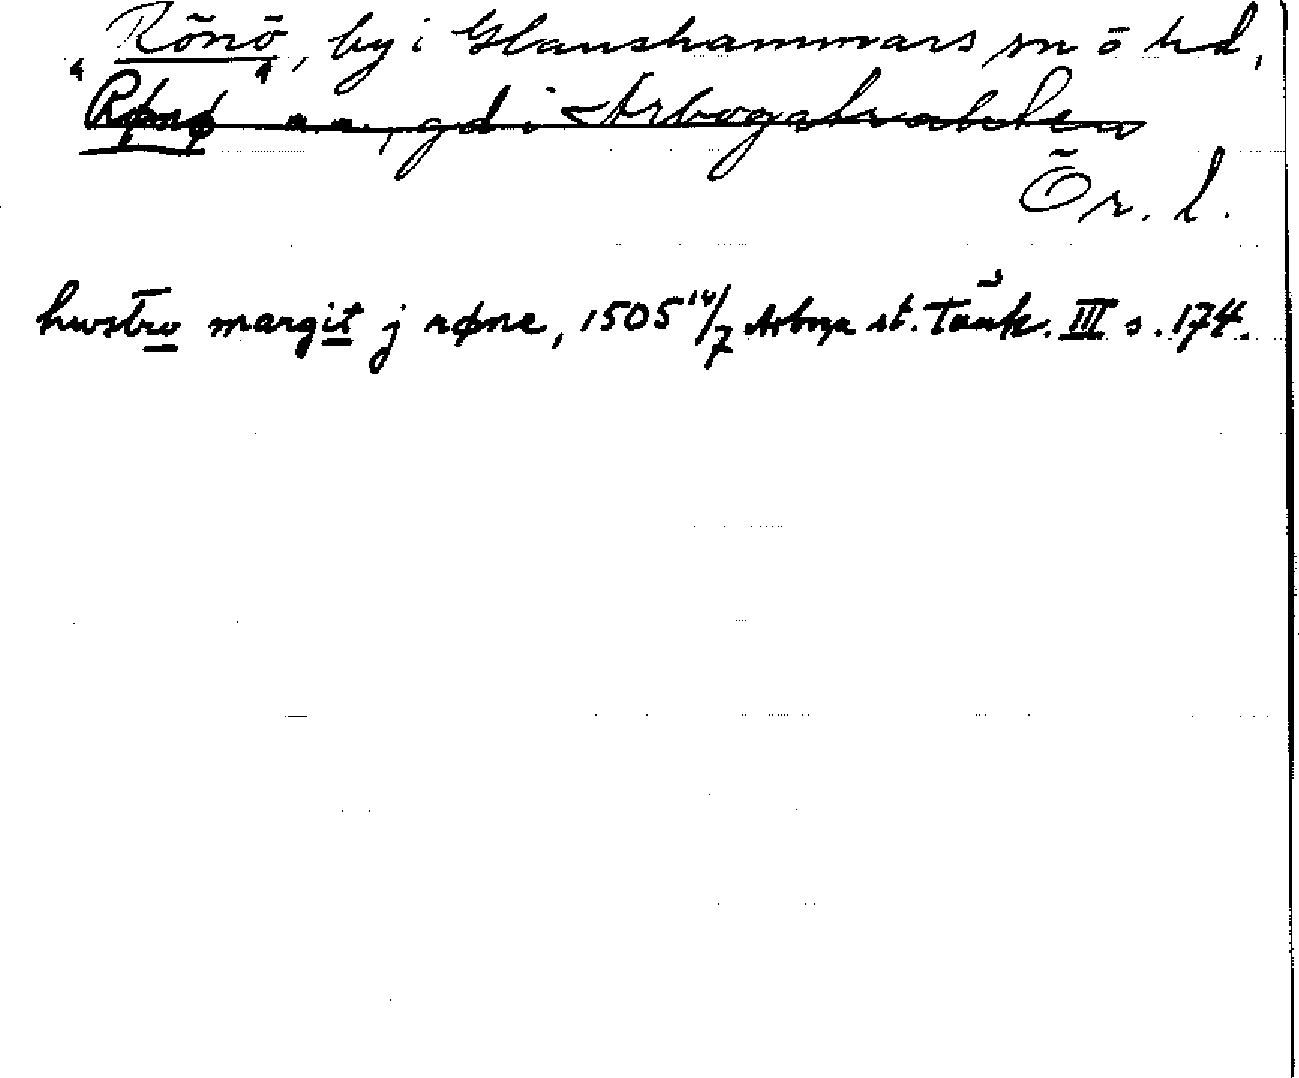 "Rönö", by i Glanshammars sn ö hd,
Rønø , gd i Arbogatrakten
Ör. l.
hwstro margit j røne, 1505 14/7 Arboga st. Tänk. III s. 174.